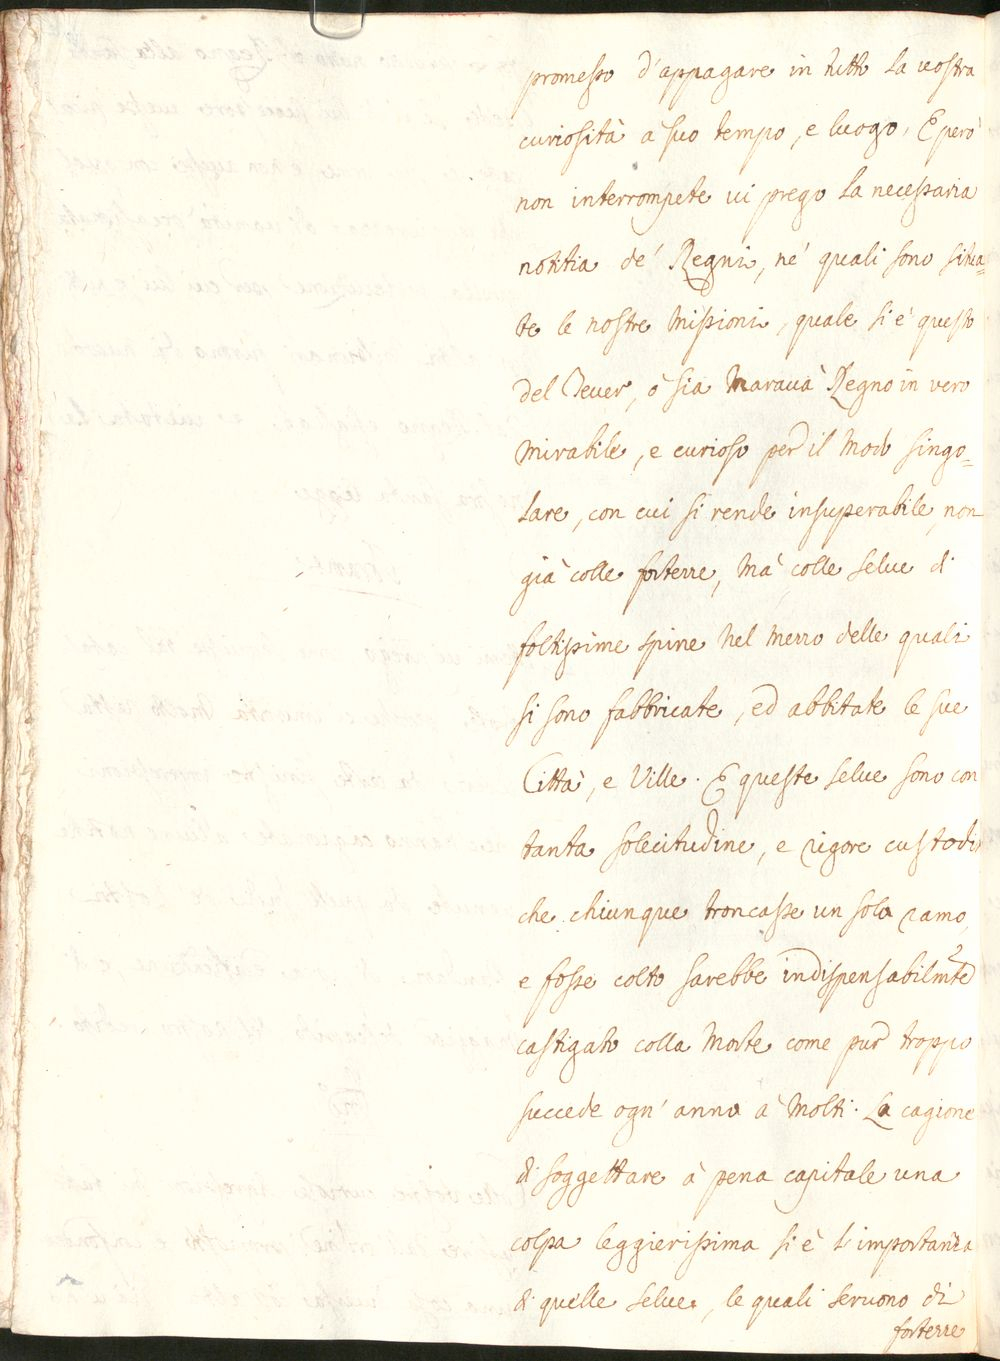 promesso d'appagare in tutto la uostra
curiosità à suo tempo, e luogo, E però
non interrompete ui prego la necessaria
notitia de' Regni, ne' quali sono situa=
te le nostre Missioni, quale si è questo
del Teuer, ò sia Marauà Regno in vero
mirabile, e curioso per il modo singo=
lare, con cui si rende insuperabile, non
già colle fortezze, mà colle selue di
foltissime spine nel mezzo delle quali
si sono fabbricate, ed abbitate le sue
Città, e Ville. E queste selue sono con
tanta solecitudine, e rigore custodi
che chiunque troncasse un solo ramo,
e fosse colto sarebbe indispensabilmte
castigato colla Morte come pur troppo
succede ogn' anno à Molti. La cagione
di soggettare à pena capitale una
colpa leggierissima si è l'importanza
di quelle selue, le quali seruono di
fortezze